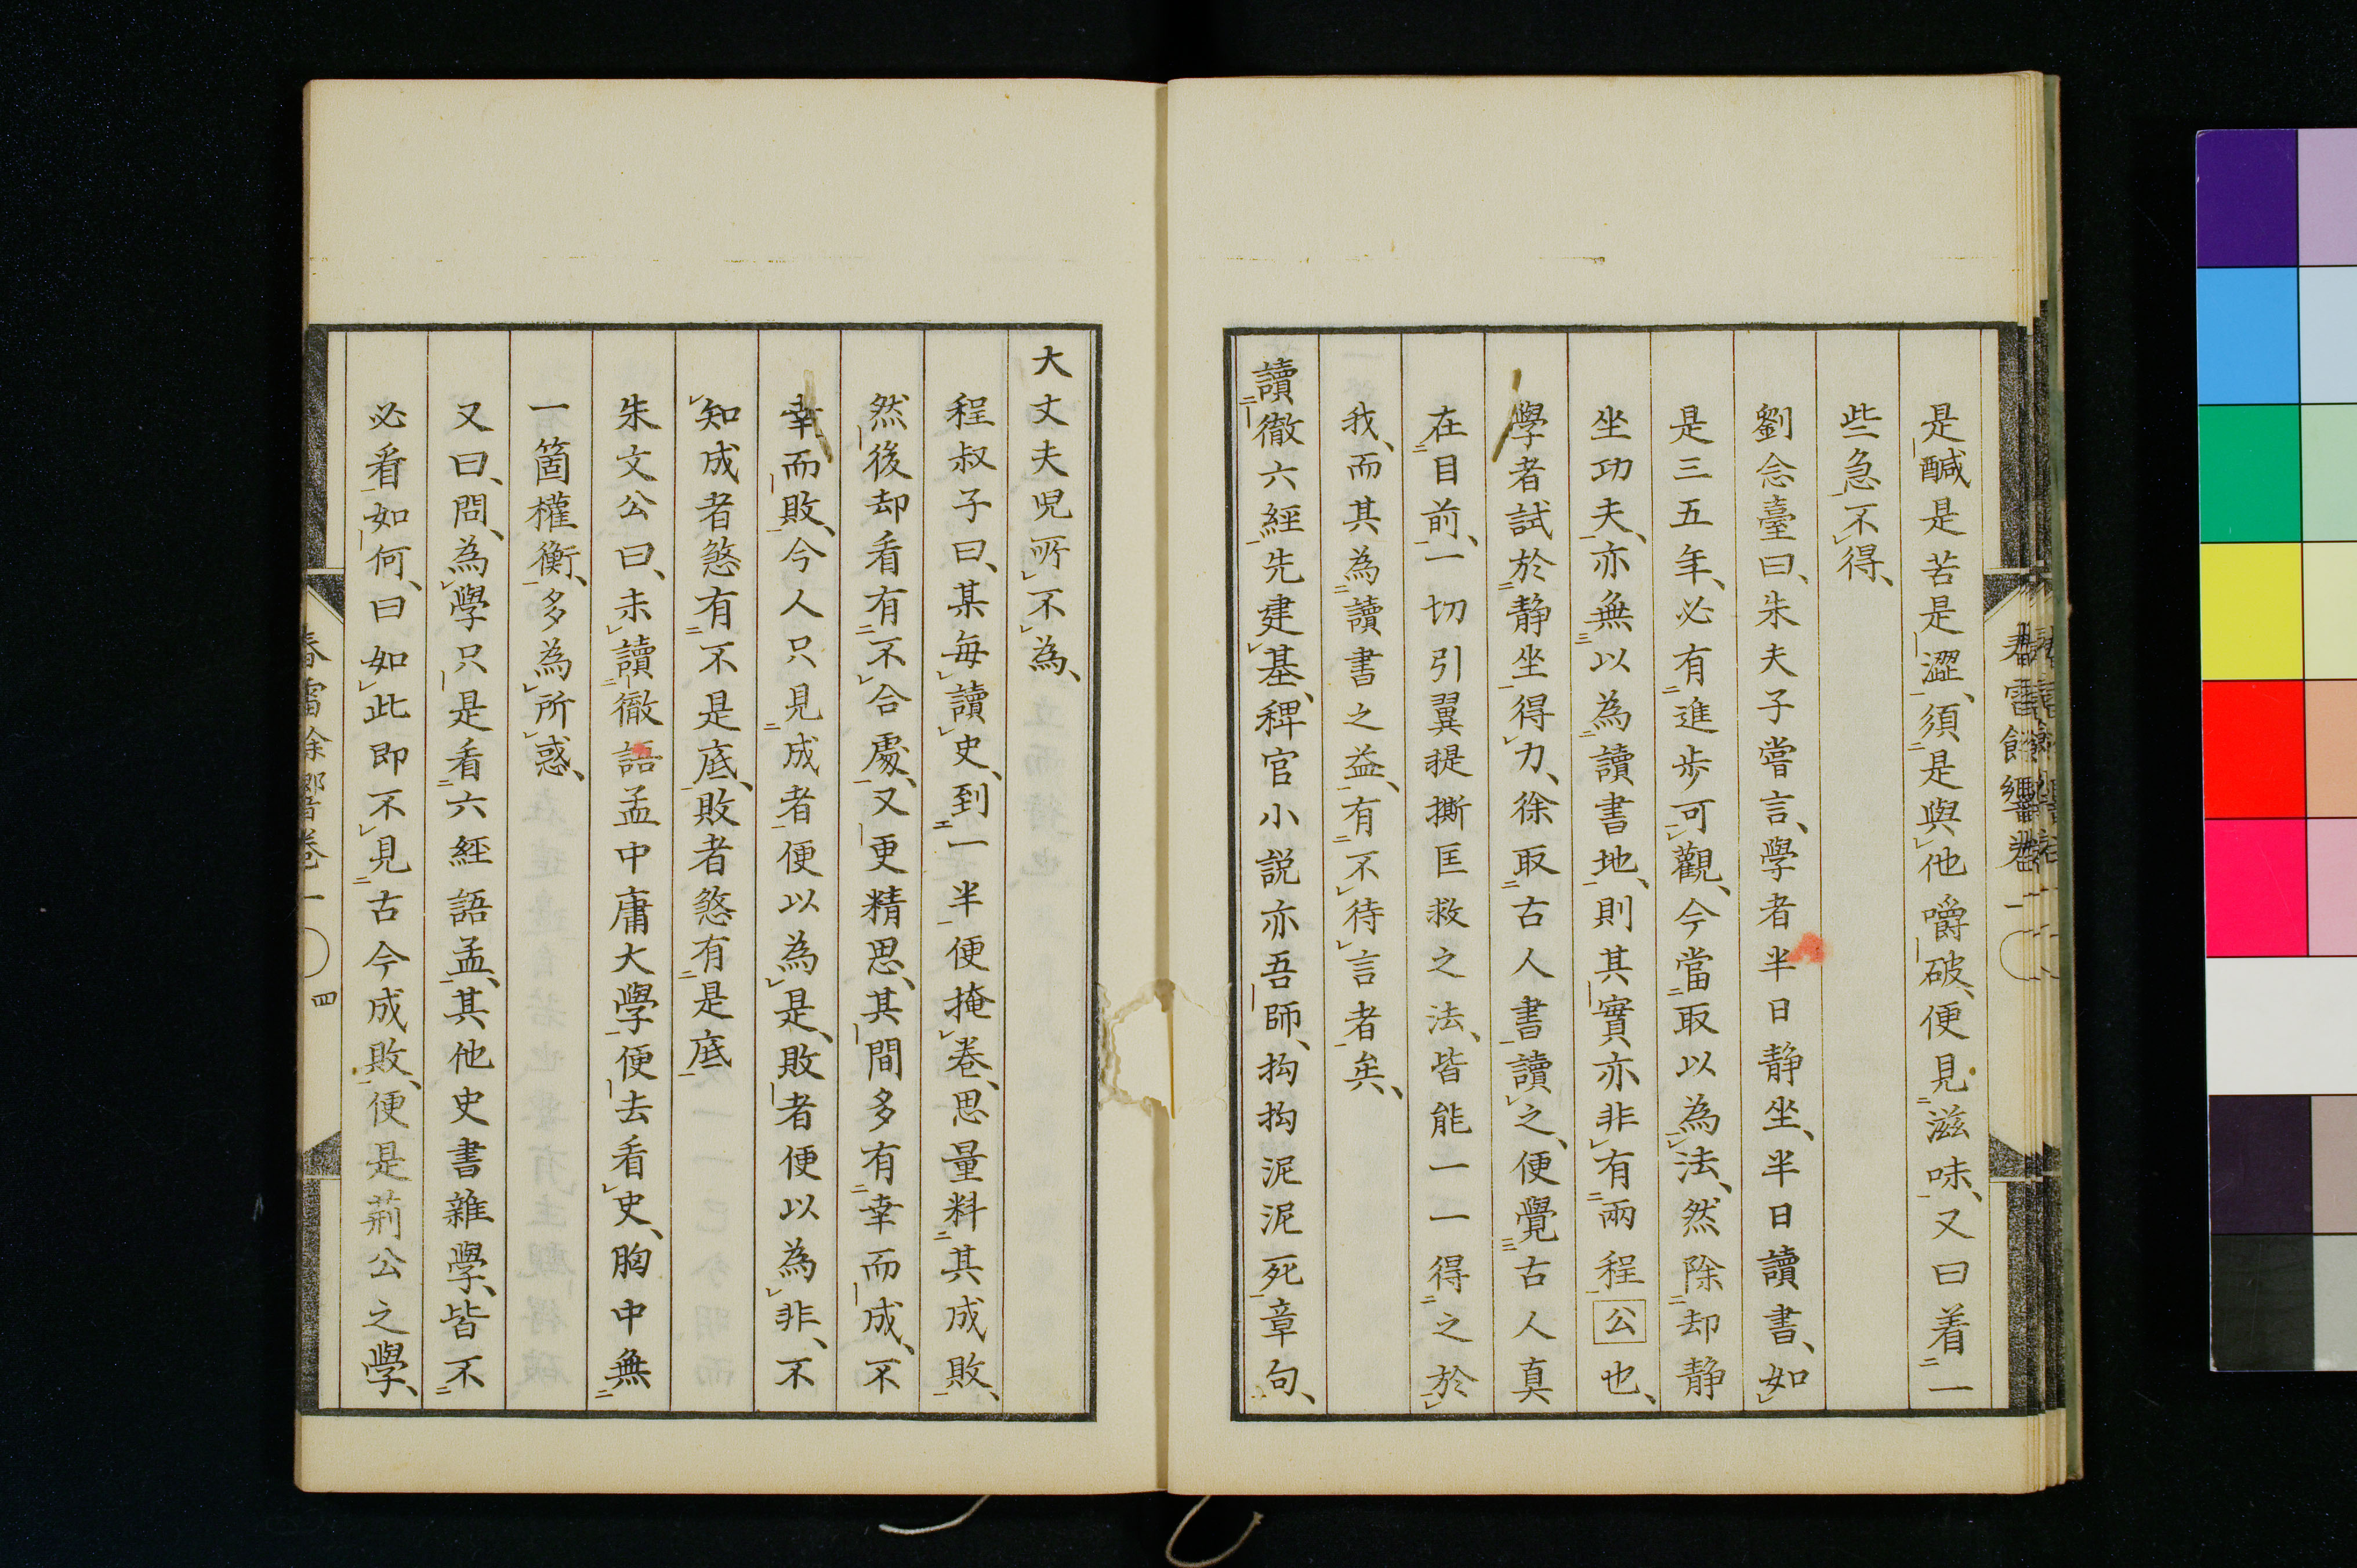 是醎是苦是澀、須是與他嚼破、便見滋味、又曰着一
些急不得、
劉念臺曰、朱夫子嘗言、學者半日静坐、半日讀書、如
是三五年、必有進歩可觀、今當取以為法、然除却静
坐功夫、亦無以為讀書地、則其實亦非有兩程公也、
學者試於静坐得力、徐取古人書讀之、便覺古人真
在目前、一切引翼提撕匡救之法、皆能一一得之於
我、而其為讀書之益、有不待言者矣、
讀徹六經先建基、稗官小説亦吾師、拘拘泥泥死章句、
大丈夫児所不為、
程叔子曰、某毎讀史、到一半便掩巻、思量料其成敗、
然後却看有不合處、又更精思、其間多有幸而成、不
幸而敗、今人只見成者便以為是、敗者便以為非、不
知成者煞有不是底、敗者煞有是底
朱文公曰、未讀徹語孟中庸大學便去看史、胸中無
一箇權衡、多為所惑、
又曰、問、為學只是看六經語孟、其他史書雜學、皆不
必看如何、曰如此即不見古今成敗、便是荊公之學、
春雷餘響巻一
四